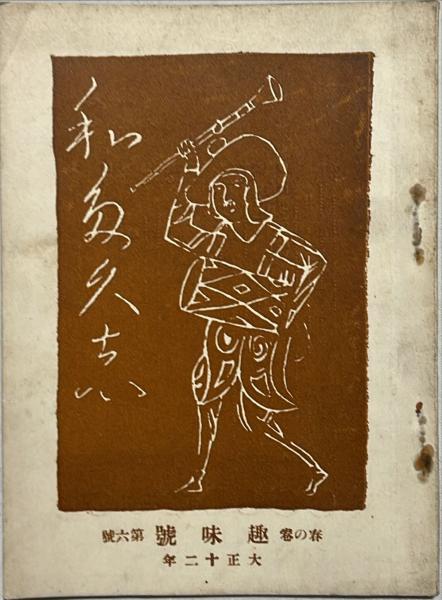 和多久志
春の卷 趣味號 第六號
大正十二年